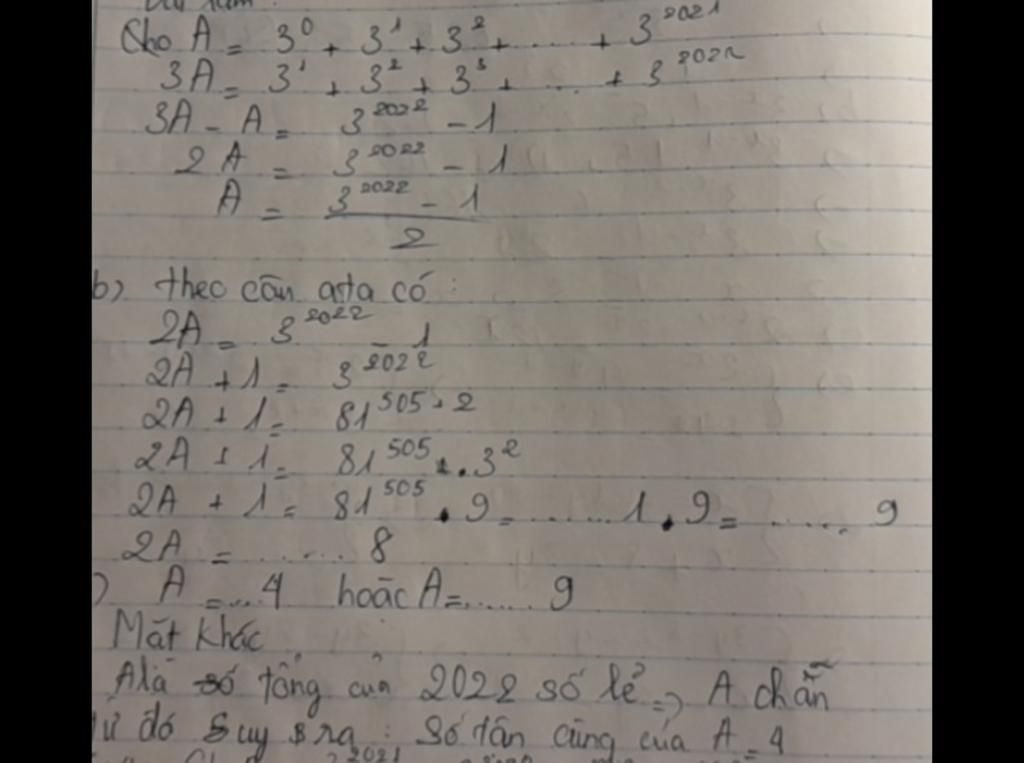 Cho A = 3⁰ + 3¹ + 3² + ..... + 3²⁰²¹
3A = 3¹ + 3² + 3³ + ..... + 3²⁰²²
3A - A = 3²⁰²² - 1
2A = 3²⁰²² - 1
A = (3²⁰²² - 1) / 2
b) theo câu a ta có :
2A = 3²⁰²² - 1
2A + 1 = 3²⁰²²
2A + 1 = 81⁵⁰⁵⁺²
2A + 1 = 81⁵⁰⁵ . 3²
2A + 1 = 81⁵⁰⁵ . 9 = ......1 . 9 = ...... 9
2A = ...... 8
) A = ...4 hoặc A = ...... 9
Mặt khác
A là số tổng của 2022 số lẻ => A chẵn
từ đó suy ra : số tận cùng của A = 4